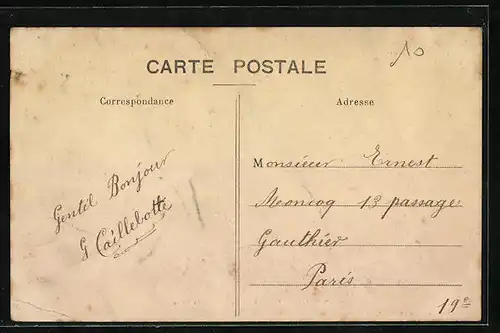 10
CARTE POSTALE
Correspondance
Adresse
Gentil Bonjour
G Caillebotte
Monsieur Ernest
Moncoq 13 passage
Gauthier
Paris
19e